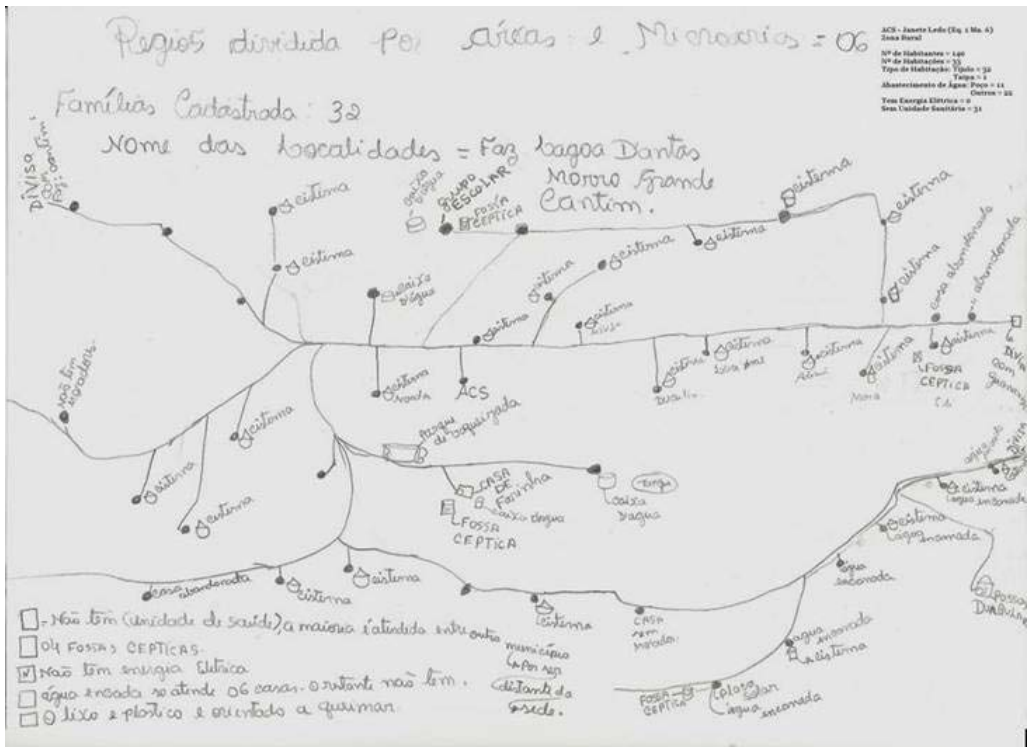 Regios dividida Por áreas e Microarias = 06
ACS - Janete Ledo (Eq. 1 Ma. 6)
Zona Rural
Nº de Habitantes = 140
Nº de Habitações = 33
Tipo de Habitação: Tijolo = 32
Taipa = 1
Abastecimento de Água: Poço = 11
Outros = 22
Tem Energia Elétrica = 0
Sem Unidade Sanitária = 31
Famílias Cadastrada: 32
Nome das Localidades = Faz Lagoa Dantas
Morro Grande
Cantim.
DIVISA
com
Faz: cantim
cisterna
cisterna
caixa
d'água
GRUPO
ESCOLAR
FOSSÍA
CEPTICA
cisterna
cisterna
cisterna
cisterna
cisterna
cisterna
casa abandonada
" abandonada
caixa
d'água
cisterna
cisterna
cisterna
ACS
cisterna
cisterna
cisterna
cisterna
Mora
cisterna
FOSSA
CEPTICA
DIVISA
com
Não tem
moradores.
cisterna
cisterna
cisterna
Parque
de vaqueijada
CASA
DE
Farinha
caixa d'agua
FOSSA
CEPTICA
caixa
d'agua
cisterna
agua enconada
cisterna
agua enconada
água
enconada
FOSSA
casa abandonada
cisterna
cisterna
cisterna
CASA
sem
Morador
agua
enconada
cisterna
FOSSA
CEPTICA
placa
solar
água enconada
- Não tem (unidade de saúde), a maioria é atendido entre outro município
Por ser
distante da
sede.
04 FOSSAS CEPTICAS.
N Não tem energia Eletrica
água encada so atende 06 casas. O restante não tem.
O lixo e plastico e orientado a queimar.